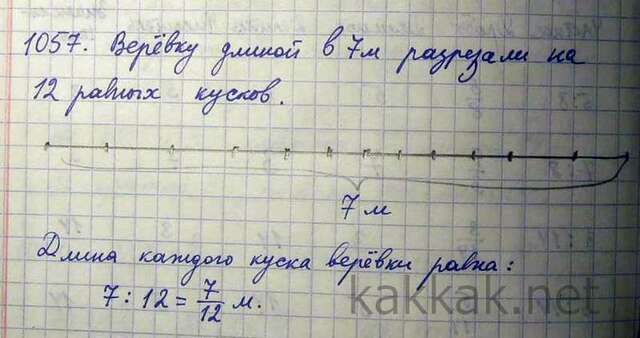 1057. Верёвку длиной в 7м разрезали на
12 равных кусков.
7 м
Длина каждого куска верёвки равна:
7 : 12 = 7/12 м.
kakkak.net